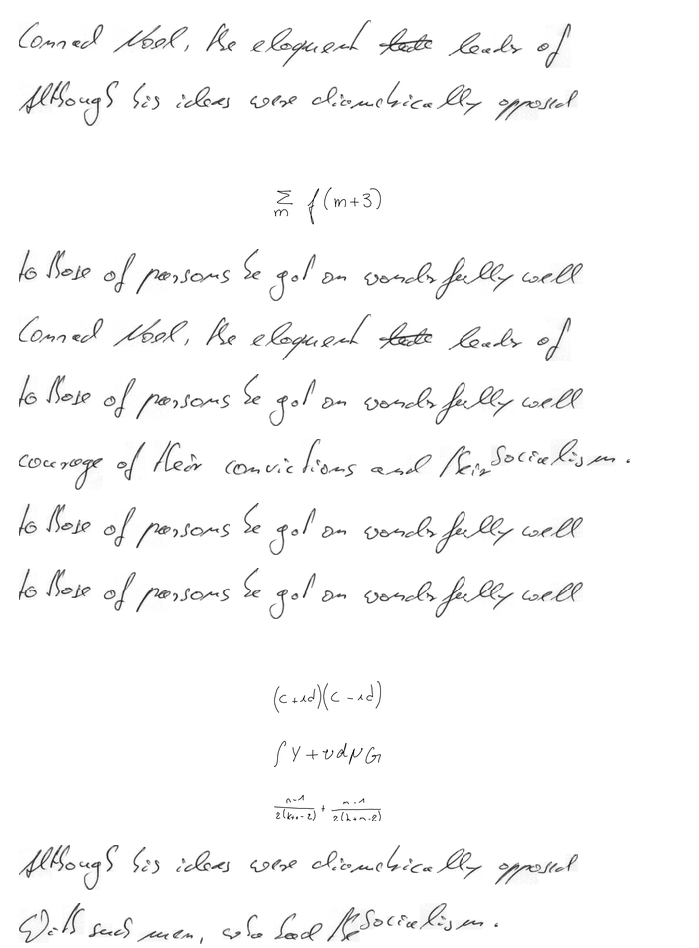 Conrad Noel, the eloquent leader of
Although his ideas were diametrically opposed
\sum_m f(m+3)
to those of parsons he got on wonderfully well
Conrad Noel, the eloquent leader of
to those of parsons he got on wonderfully well
courage of their convictions and their Socialism.
to those of parsons he got on wonderfully well
to those of parsons he got on wonderfully well
(c+id)(c-id)
\int Y + v d\mu_G
\frac{n-1}{2(k+n-2)} + \frac{n-1}{2(k+n-2)}
Although his ideas were diametrically opposed
With such men, who had the Socialism.